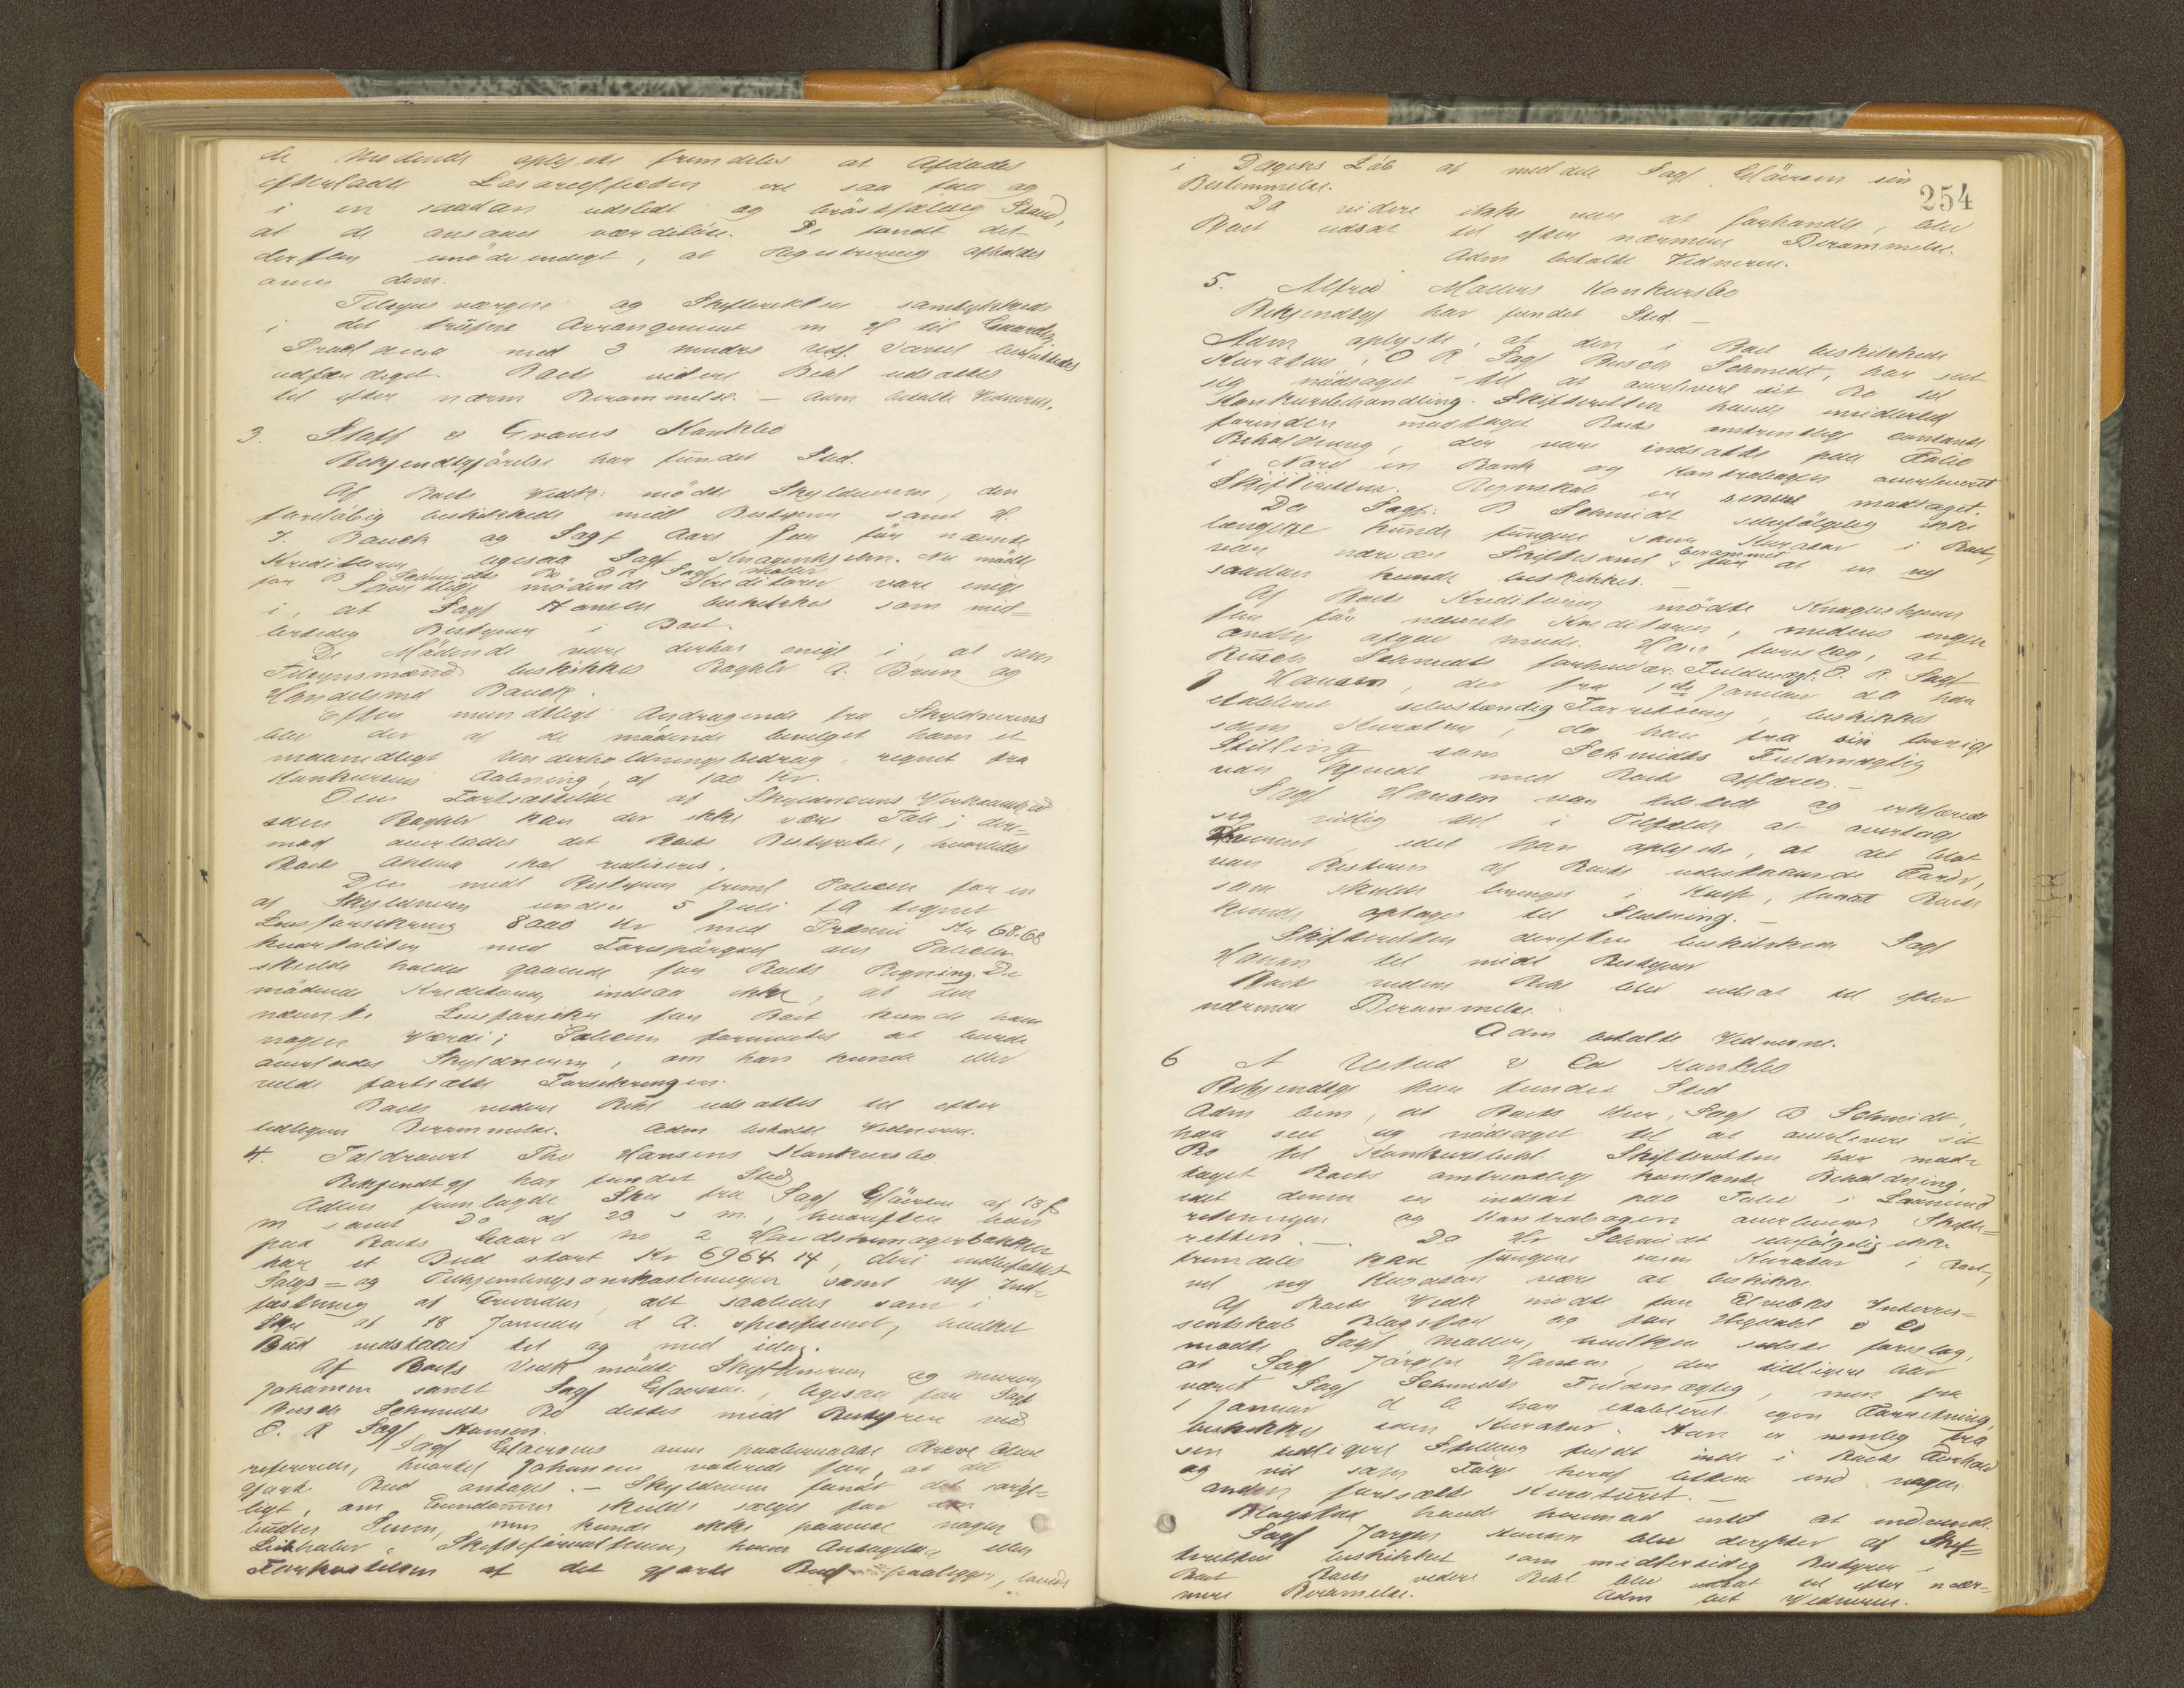 de Mødende oplyste fremdeles at Afdødes
efterladte Løsøreeffecter er saa faa og
i en saadan udslidt og brøstfældig Stand,
at de ansaaes værdiløse. De fandt det
derfor unødvendigt, at Registrering afholdes
over dem.
Tilsynsværgen og Skifteretten samtykkede
i det trufne Arrangement m H til Gaarden
Proclama med 3 mndrs Varsel besluttedes
udfærdiget. Boets videre Behl udsattes
til efter nærm Berammelse. – Adm betalte Vidnerne.
3. Staff & Graves Konkbo
Bekjendtgjørelse har fundet Sted.
Af Boets Vedk: mødte Skyldneren, den
foreløbig beskikkede midl Bestyrer samt H.
J. Bauck og Sagf Aars for før nævnte
Kreditorer, ligesaa Sagf Nu mødte
for B Schmidts Bo O R Sagf Møller
Samtlige mødende Kreditorer vare enige
i, at Sagf Hansen beskikkes som mid-
lertidig Bestyrer i Boet.
De Mødende vare derhos enige i, at som
Tilsynsmænd beskikkes Boghlr A. Brun og
Handelsmd Bauck.
Efter mundtligt Andragende fra Skyldnerens
blev der af de mødende bevilget ham et
maanedligt Underholdningsbedrag, regnet fra
Konkursens Aabning, af 100 Kr.
Om Fortsættelse af Skyldnerens Virksomhed
som Boghlr kan der ikke være Tale; der-
mod overlades det Boets Bestyrelse, hvorledes
Boets Aktiva skal realiseres.
Den midl Bestyrer freml Policen for en
af Skyldneren under 5 Juli f A tegnet
Livsforsikring 8000 Kr med Præmie Kr 68.68
kvartaliter med Forespørgsel om Policen
skulde holdes gaaende for Boets Regning. De
mødende Kreditorer indsaa ikke, at den
nævnte Livsforsikr for Boet kunde have
nogen Værdi; Policen formentes at burde
overlades Skyldneren, om han kunde eller
vilde fortsætte Forsikringen.
Boets videre Behl udsattes til efter
tidligere Berammelse. Adm betalte Vidnerne.
4. Toldroret Tho Hansens Konkursbo
Bekjendtgj har fundet Sted
Adm fremlagde Skr fra Sagf Gløersen af 18 f
m samt Do af 23 s m., hvorefter han
paa Boets Gaard no 2 Handskemagerbakken
har et Bud stort Kr 6964 14, deri indbefattet
Salgs- og Tilhjemlingsomkostninger samt ny Ind-
fæstning af Grunden, alt saaledes som i
Skr af 18 Januar d A. specificeret, hvilket
Bud vedstaaes til og med idag.
Af Boets Vedk mødte Skyldneren og murer
Johansen samt Sagf Gløersen, ligesaa for Sagf
Busch Schmidts Bo dettes midl Bestyrer ved
O. R Sagf Hansen.
Sagf Gløersens oven paaberaabte Breve blev
refererede, hvortil Johansen voterede for, at det
gjorte Bud antages. – Skyldneren fandt det sørge-
ligt, om Eiendommen skulde sælges for den
budne Sum, men kunde ikke paavise nogen
Liebhaber. Skifteforvalteren, hvem Antagelsen eller
Forkastelsen af det gjorte Bud paaligger, lovede
254
i Dagens Løb at meddele Sagf Gløersen sin
Bestemmelse.
Da videre ikke var at forhandle, blev
Boet udsat til efter nærmere Berammelse.
Adm betalte Vidnerne.
5. Alfred Mallers Konkursbo
Bekjendtgj har fundet Sted. –
Adm oplyste, at den i Boet beskikkede
Kurator, O R Sagf Busch Schmidt, har set
sig nødsaget til at overlevere sit Bo til
Konkursbehandling. Skifteretten havde imidlertid
forinden modtaget Boets omtrentlige contante
Beholdning, der var indsatte paa Folio
i Nord en Bank og Kontrabogen overleveret
Skifteretten. Regnskab er senere modtaget.
Da Sagf: B Schmidt selvfølgelig ikke
længere kunde fungere som Kurator i Boet,
var nærvær Skiftesaml berammet for at en ny
saadan kunde beskikkes. –
Af Boets Kreditorer mødte Knagenhjem
for før nævnte Kreditorer, medens ingen
anden afgav møde. Hans forslag, at
Busch Schmidts forhenvær: Fuldmægt: O. R. Sagf
J Hansen, der fra 1ste Januar da han
etablerte selvstændig Forretning, beskikkes
som Kurator, da han fra sin forrige
Stilling som Schmidts Fuldmægtig
var kjendt med Boets Affærer. –
Sagf Hansen var tilstede og erklærede
sig villig til i Tilfælde at overtage
Hvervet, idet han oplyste, at det blot
var Resterne af Boets udestaaende Fordr,
som skulde bringes i Kasse, forat Boets
kunde optages til Slutning. –
Skifteretten derefter beskikkede Sagf
Hansen til midl Bestyrer
Boets videre Behl blev udsat til efter
nærmere Berammelse.
Adm betalte Vidnerne.
6 A Ustad & Co Konkbo
Bekjendtgj har fundet Sted
Adm bem, at Boets Kur, Sagf B Schmidt,
har seet sig nødsaget til at overlevere sit
Bo til Konkursbehl. Skifteretten har mod-
taget Boets omtrentlige kontante Beholdning,
idet denne er indsat paa Folio i
retningen og Kontrabogen overleveret Skifte-
retten. – Da Hr Schmidt selvfølgelig ikke
fremdeles kan fungere som Kurator i Boet,
vil ny Kurator være at beskikke.
Af Boets Vedk mødte for Interes-
sentskab Blagstad og for Hegdahl & Co
mødte Sagf Møller, hvilken sidste foreslog,
at Sagf Jørgen Hansen, der tidligere har
været Sagf Schmidts Fuldmægtig, men fra
1 Januar d A har etableret egen Forretning,
beskikkes som Kurator. Han er nemlig fra
sin tidligere Stilling inde i Boets Forhold
og vil som Følge heraf lettere end nogen
anden fortsætte Kuratoriet. –
Blagstad havde hermod intet at indvende.
Sagf Jørgen Hansen blev derefter af Skif-
teretten beskikket som midlertidig Bestyrer i
Boet Boets videre Behl blev udsat til efter nær-
mere Berammelse. Adm bet Vidnerne.